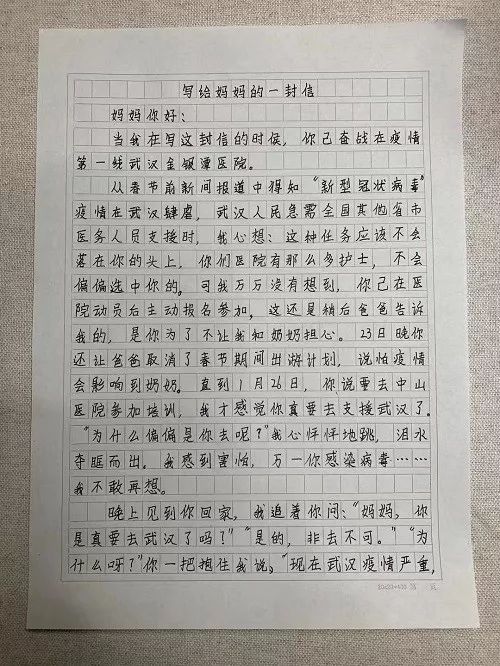 写给妈妈的一封信
妈妈你好：
当我在写这封信的时候，你已奋战在疫情
第一线武汉金银潭医院。
从春节前新闻报道中得知“新型冠状病毒”
疫情在武汉肆虐，武汉人民急需全国其他省市
医务人员支援时，我心想：这种任务应该不会
落在你的头上，你们医院有那么多护士，不会
偏偏选中你的。可我万万没有想到，你已在医
院动员后主动报名参加，这还是稍后爸爸告诉
我的，是你为了不让我和奶奶担心。23日晚你
还让爸爸取消了春节期间出游计划，说怕疫情
会影响到奶奶。直到1月26日，你说要去中山
医院参加培训，我才感觉你真要去支援武汉了。
“为什么偏偏是你去呢？”我心怦怦地跳，泪水
夺眶而出。我感到害怕，万一你感染病毒……
我不敢再想。
晚上见到你回家，我追着你问：“妈妈，你
是真要去武汉了吗？”“是的，非去不可。”“为
什么呀？”你一把抱住我说。“现在武汉疫情严重，
20×20=400
页